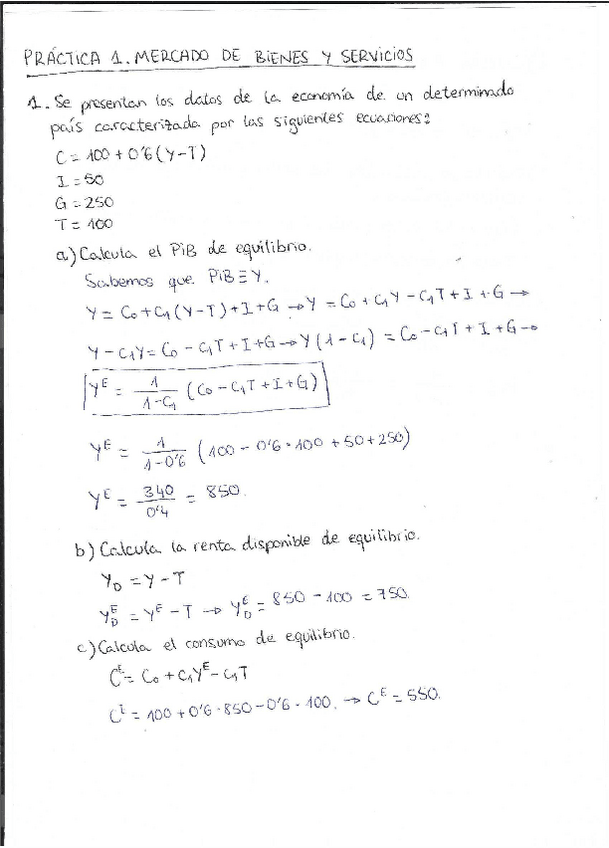 PRÁCTICA 1. MERCADO DE BIENES Y SERVICIOS
1. Se presentan los datos de la economía de un determinado
país caracterizada por las siguientes ecuaciones:
C = 100 + 0'6 (Y-T)
I = 50
G = 250
T = 100
a) Calcula el PiB de equilibrio.
Sabemos que PiB ≡ Y.
Y = C₀ + C₁ (Y-T) + I + G → Y = C₀ + C₁Y - C₁T + I + G →
Y - C₁Y = C₀ - C₁T + I + G → Y (1 - C₁) = C₀ - C₁T + I + G →
Yᴱ = 1/(1-C₁) (C₀ - C₁T + I + G)
Yᴱ = 1/(1-0'6) (100 - 0'6 · 100 + 50 + 250)
Yᴱ = 340/0'4 = 850.
b) Calcula la renta disponible de equilibrio.
Y_D = Y - T
Y_Dᴱ = Yᴱ - T → Y_Dᴱ = 850 - 100 = 750.
c) Calcula el consumo de equilibrio.
Cᴱ = C₀ + C₁Yᴱ - C₁T
Cᴱ = 100 + 0'6 · 850 - 0'6 · 100. → Cᴱ = 550.